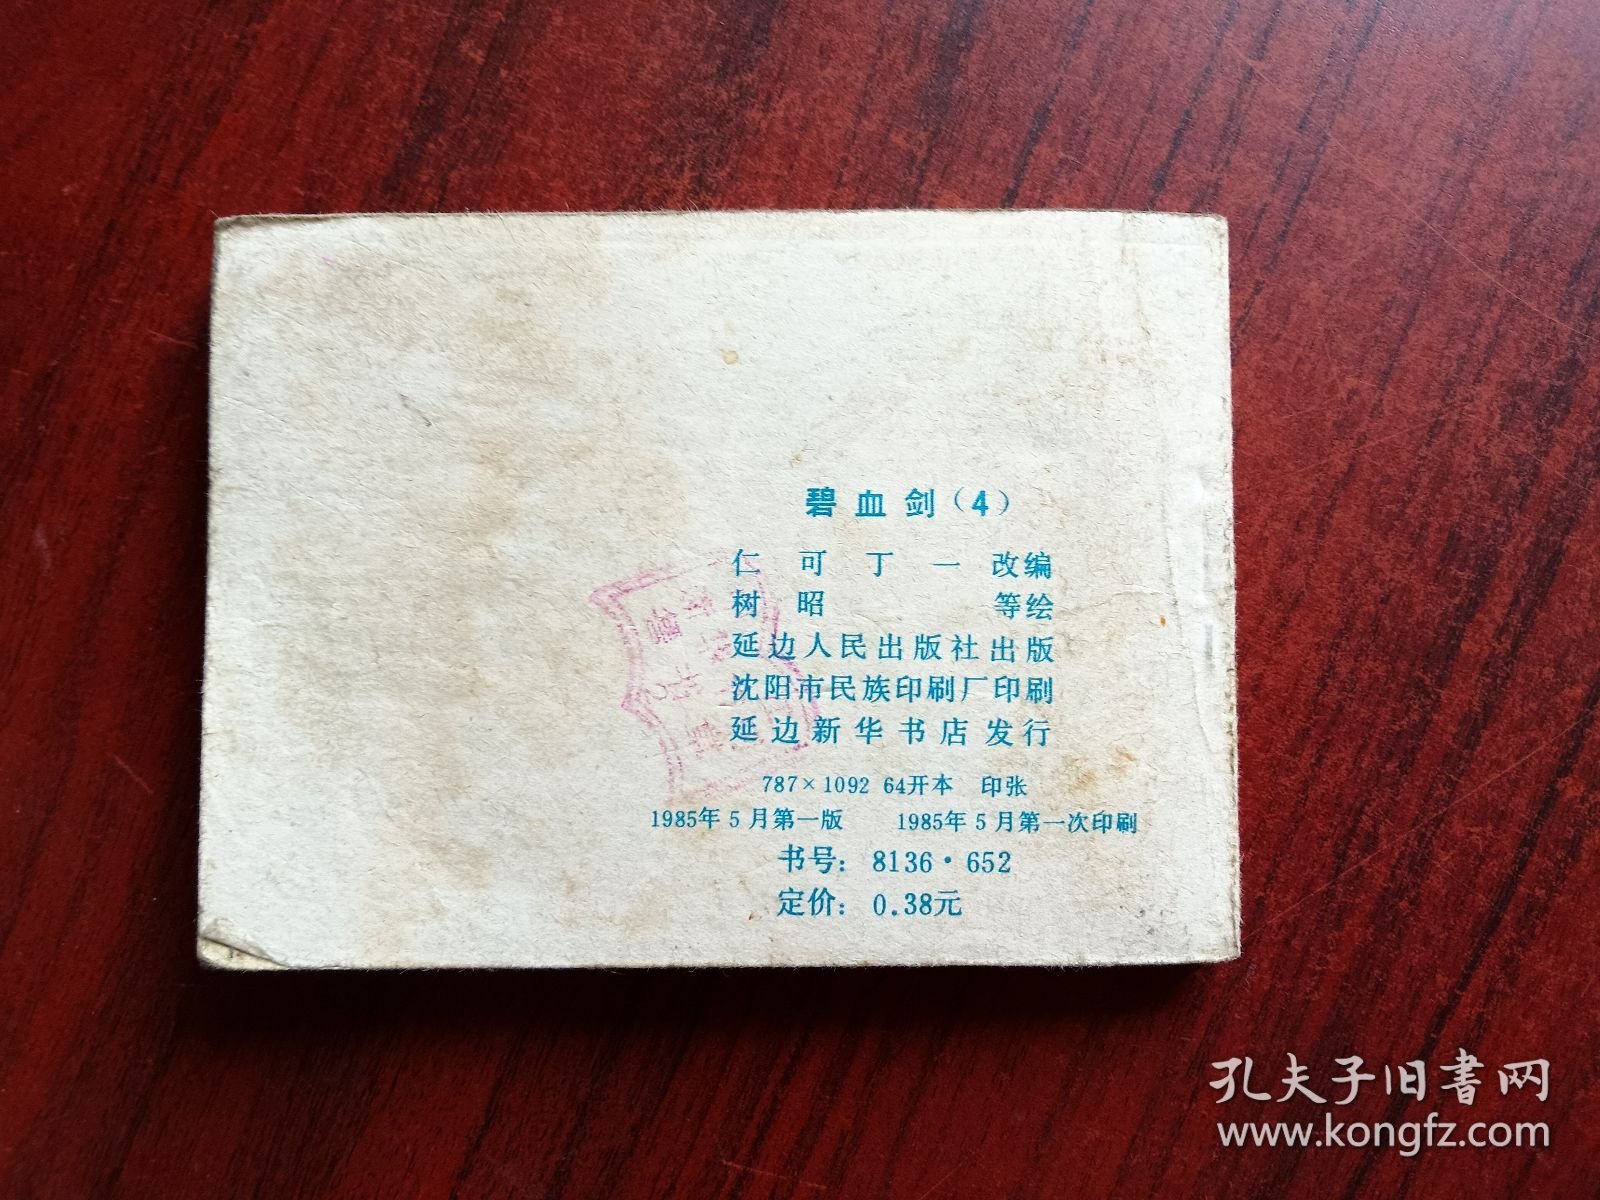 碧血剑（4）
仁可丁一改编
树昭等绘
延边人民出版社出版
沈阳市民族印刷厂印刷
延边新华书店发行
787×1092 64开本 印张
1985年5月第一版 1985年5月第一次印刷
书号：8136·652
定价：0.38元
孔夫子旧書网
www.kongfz.com